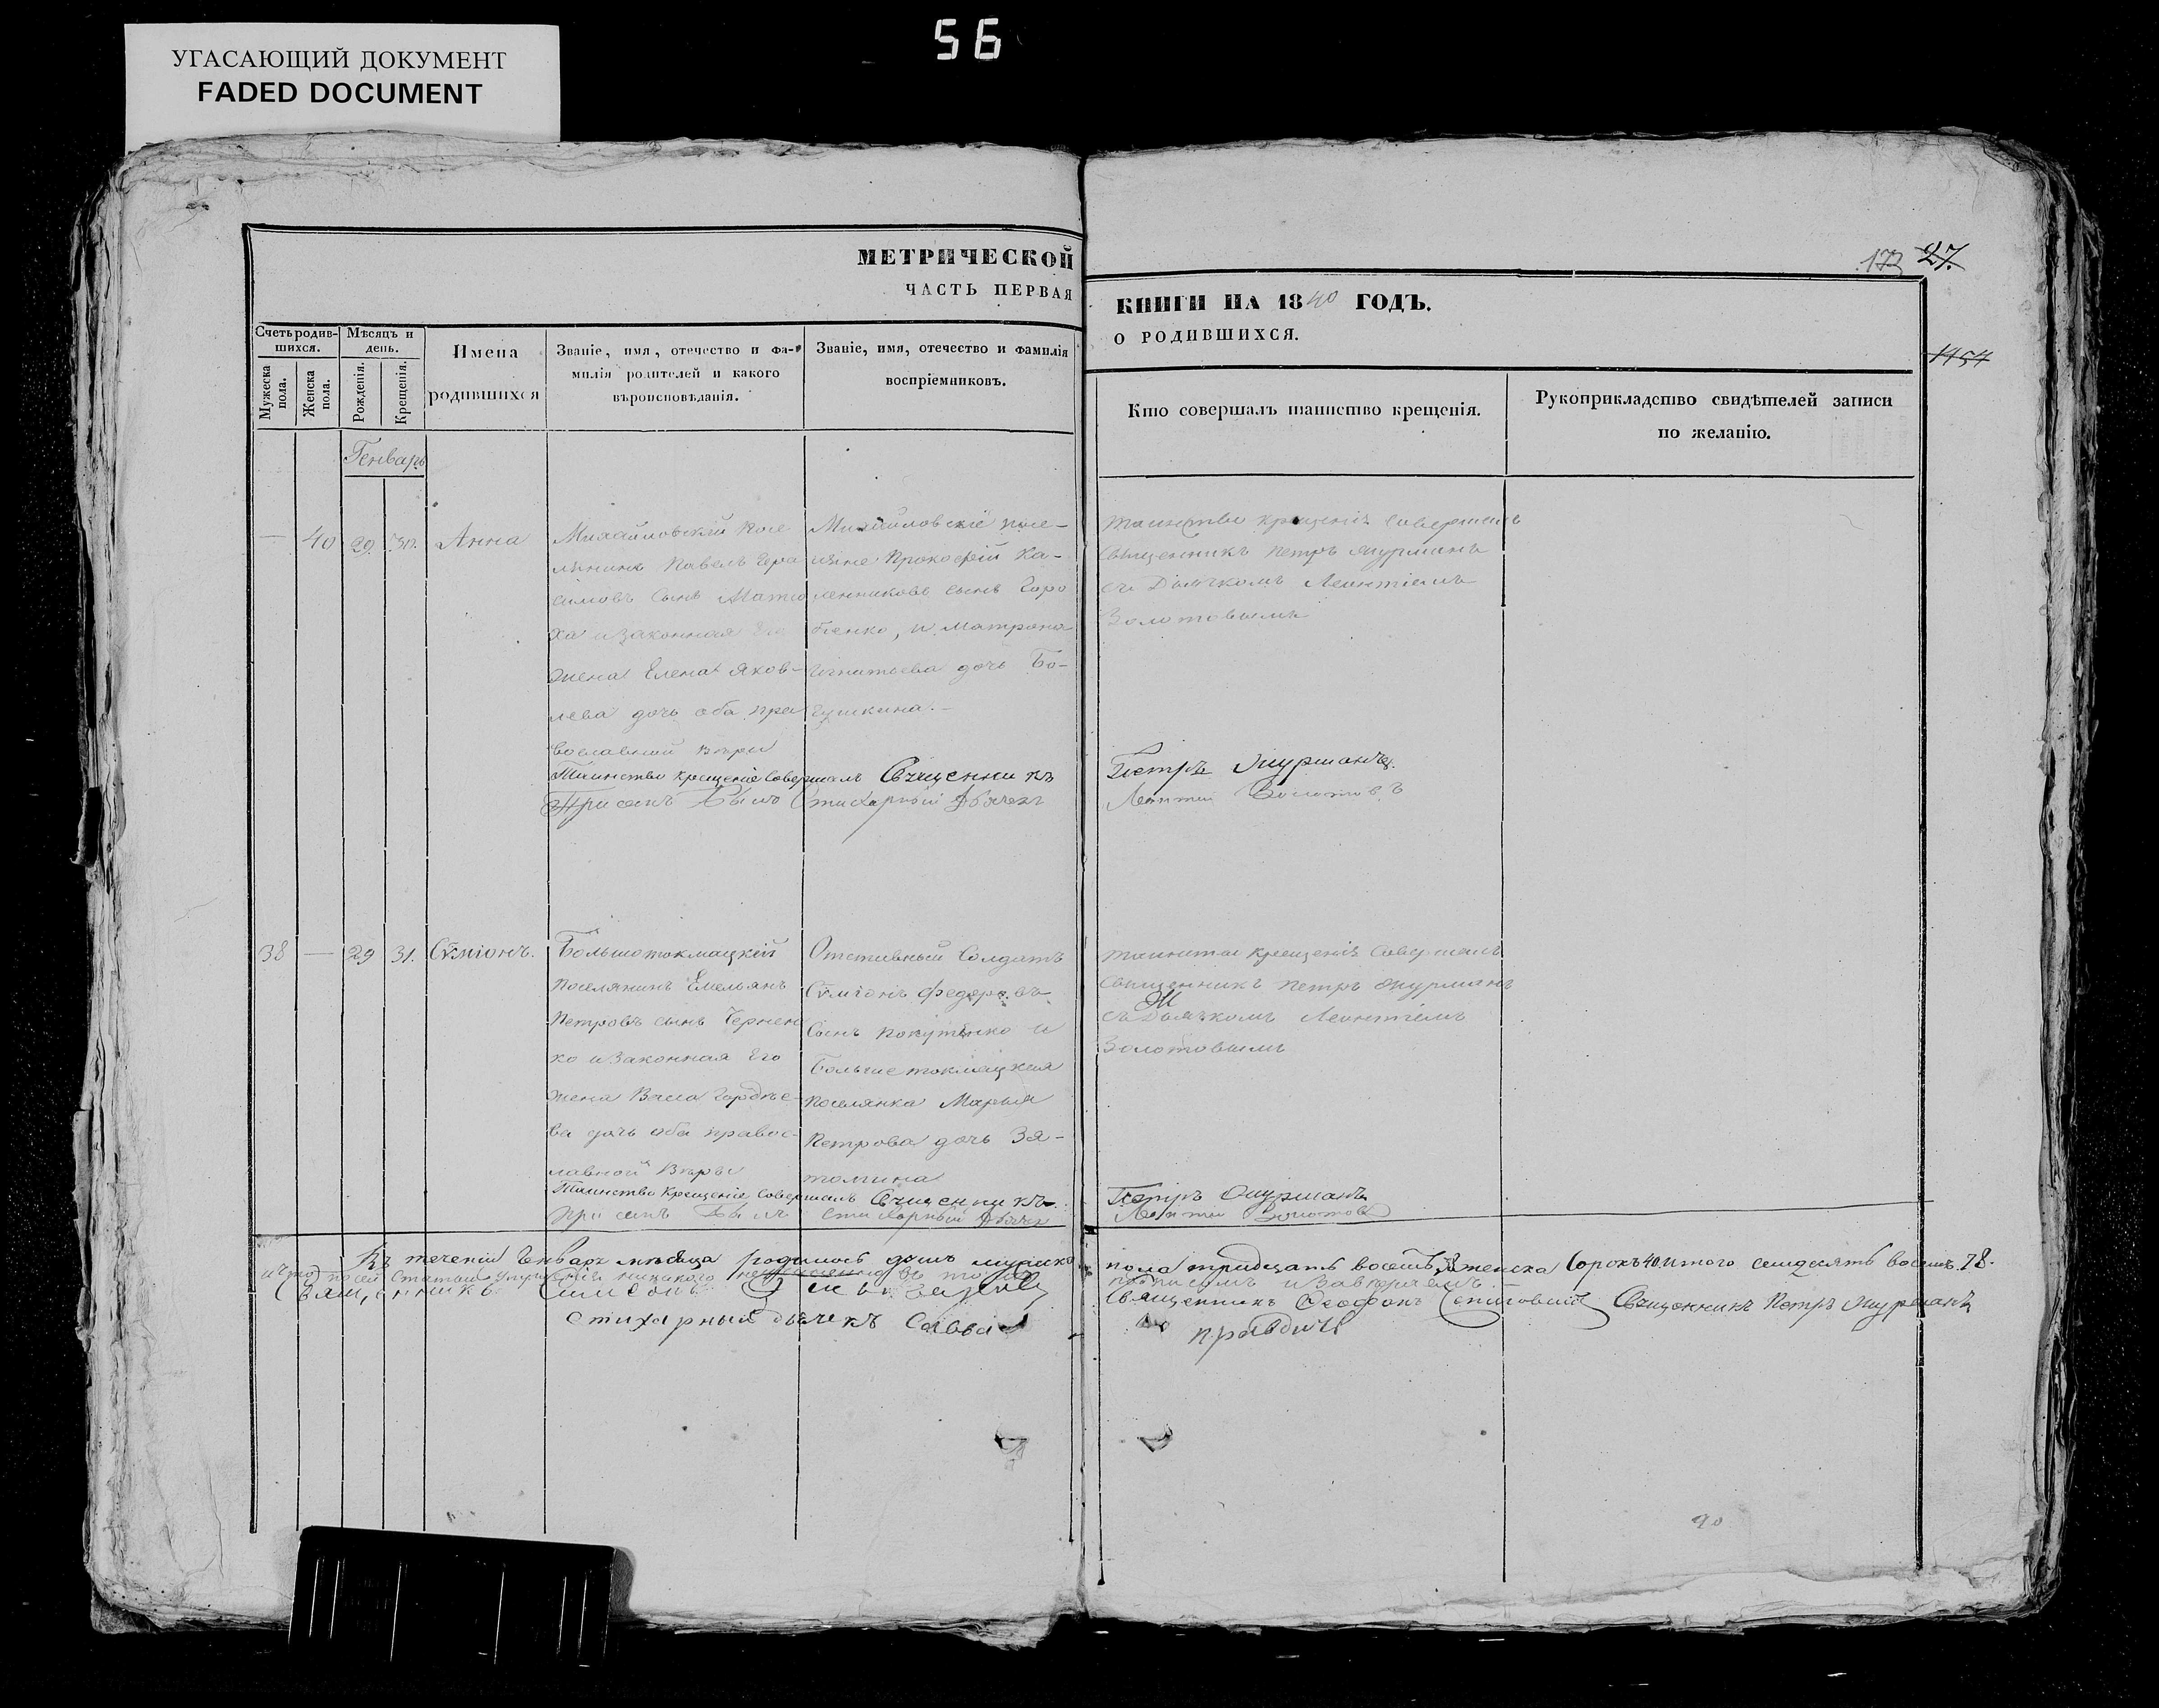 56
УГАСАЮЩИЙ ДОКУМЕНТ
FADED DOCUMENT
МЕТРИЧЕСКОЙ
ЧАСТЬ ПЕРВАЯ
173 27.
КНИГИ НА 1840 ГОДЪ.
О РОДИВШИХСЯ.
1454
Счетъ родив-
шихся.
Мужеска пола.
Женска пола.
Мѣсяцъ и
день.
Рожденія.
Крещенія.
Имена
родившихся
Званіе, имя, отечество и фа-
милія родителей и какого
вѣроисповѣданія.
Званіе, имя, отечество и фамилія
воспріемниковъ.
Кто совершалъ таинство крещенія.
Рукоприкладство свидѣтелей записи
по желанію.
Генварь
— 40 29 30. Анна
Михайловскій посе
лянинъ Павелъ Гера
симовъ сынъ
ха и законная Его
жена Елена Яков-
лева дочь оба пра
вославной вѣры
Михайловскіе посе-
ляне Прокофій Ка-
ленниковъ сынъ Горо
бченко, и Матрона
Игнатьева дочь Бо-
гушкина.—
таинство крещенія совершалъ
священникъ Петръ Шурманъ
съ Дьячкомъ Леонтіемъ
Золотовымъ
Таинство крещеніе совершалъ Священникъ Петръ Шурманъ.
При семъ былъ Стихарный Дьячекъ Леонтий Золотовъ
38 — 29 31. Сѵміонъ.
Большотокмацкій
поселянинъ Емельянъ
Петровъ сынъ Чернен
ко и законная Его
жена Васса Гордѣе-
ва дочь оба правос-
лавной Вѣры
Отставный Солдатъ
Сѵміонъ Федоровъ
Сынъ Покутенко и
Большетокмацкая
поселянка Марья
Петрова дочь Зя-
толина
таинство крещенія совершалъ
священникъ Петръ Шурманъ
съ Дьячкомъ Леонтіемъ
Золотовымъ
Таинство крещеніе совершалъ Священникъ Петръ Шурманъ
При семъ былъ стихарный Дьячекъ Леонтий Золотовъ
Въ теченіи Генваря мѣсяца родилось душъ мужска пола тридцать восемь, женска сорокъ 40. итого семдесятъ восемь. 78.
и что по сей статьи никакого въ томъ подписуемъ и
Священникъ Симеонъ Священникъ Ѳеофанъ Священникъ Петръ Шурманъ
стихарный дьячекъ Савва Правдичъ
90